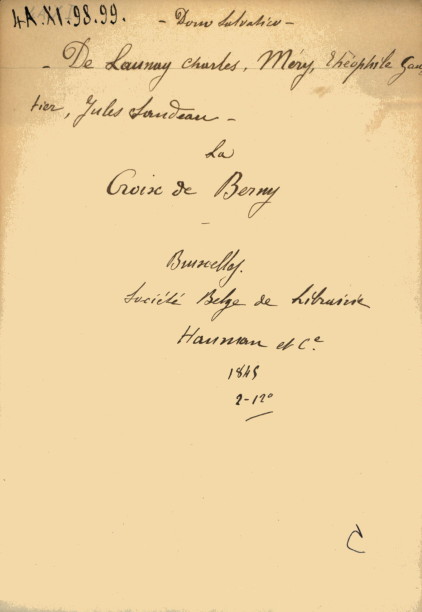 4A.XI.98.99. - Dono Salvatico -
- De Launay Charles, Méry, Théophile Gau
tier, Jules Sandeau -
La
Croix de Berny
-
Bruxelles.
Société Belge de Librairie
Hauman et Cᵉ.
1845
2-12º
C